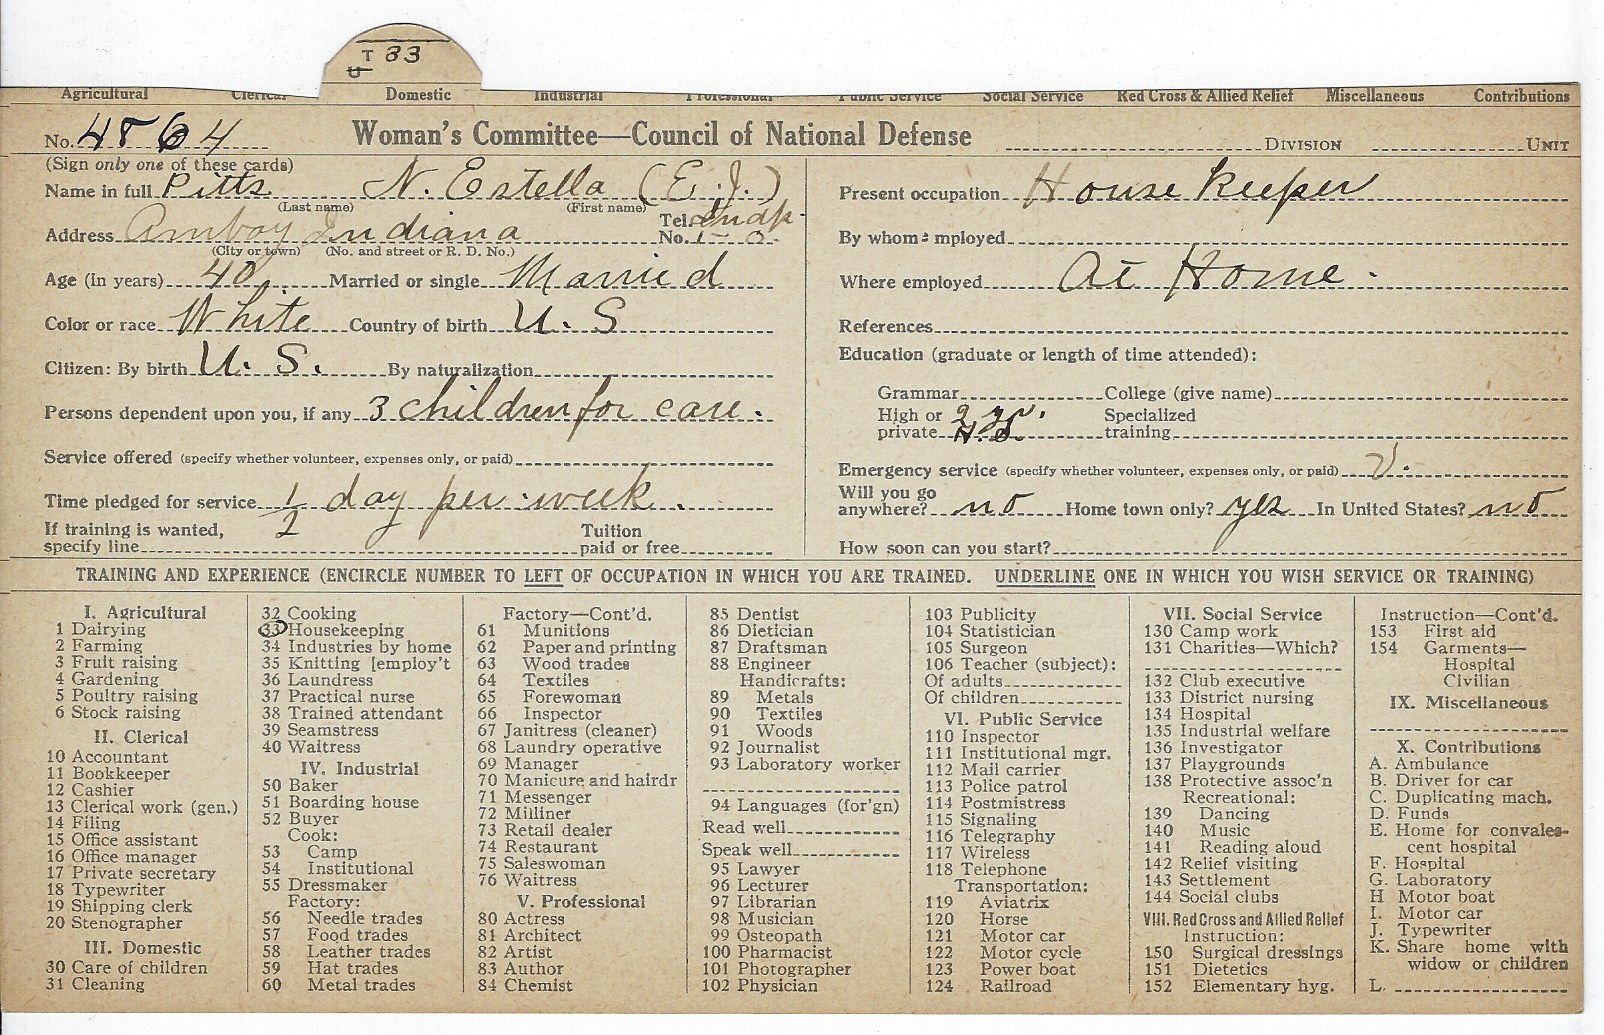 T 33
U
Agricultural Clerical Domestic Industrial Professional Public Service Social Service Red Cross & Allied Relief Miscellaneous Contributions
No. 4864 Woman's Committee—Council of National Defense DIVISION UNIT
(Sign only one of these cards)
Name in full Pitts N. Estella (E. J.)
(Last name) (First name)
Address Amboy Indiana Tel. Indp.
No. 1-0.
(City or town) (No. and street or R. D. No.)
Age (in years) 40. Married or single Married
Color or race White Country of birth U. S
Citizen: By birth U. S. By naturalization
Persons dependent upon you, if any 3 children for care.
Service offered (specify whether volunteer, expenses only, or paid)
Time pledged for service 1/2 day per week.
If training is wanted, Tuition
specify line paid or free
Present occupation House Keeper
By whom employed
Where employed At Home.
References
Education (graduate or length of time attended):
Grammar College (give name)
High or 2 yr. Specialized
private H. S. training
Emergency service (specify whether volunteer, expenses only, or paid) V.
Will you go
anywhere? no Home town only? yes In United States? no
How soon can you start?
TRAINING AND EXPERIENCE (ENCIRCLE NUMBER TO LEFT OF OCCUPATION IN WHICH YOU ARE TRAINED. UNDERLINE ONE IN WHICH YOU WISH SERVICE OR TRAINING)
I. Agricultural
1 Dairying
2 Farming
3 Fruit raising
4 Gardening
5 Poultry raising
6 Stock raising
II. Clerical
10 Accountant
11 Bookkeeper
12 Cashier
13 Clerical work (gen.)
14 Filing
15 Office assistant
16 Office manager
17 Private secretary
18 Typewriter
19 Shipping clerk
20 Stenographer
III. Domestic
30 Care of children
31 Cleaning
32 Cooking
33 Housekeeping
34 Industries by home
35 Knitting [employ't
36 Laundress
37 Practical nurse
38 Trained attendant
39 Seamstress
40 Waitress
IV. Industrial
50 Baker
51 Boarding house
52 Buyer
Cook:
53 Camp
54 Institutional
55 Dressmaker
Factory:
56 Needle trades
57 Food trades
58 Leather trades
59 Hat trades
60 Metal trades
Factory—Cont'd.
61 Munitions
62 Paper and printing
63 Wood trades
64 Textiles
65 Forewoman
66 Inspector
67 Janitress (cleaner)
68 Laundry operative
69 Manager
70 Manicure and hairdr
71 Messenger
72 Milliner
73 Retail dealer
74 Restaurant
75 Saleswoman
76 Waitress
V. Professional
80 Actress
81 Architect
82 Artist
83 Author
84 Chemist
85 Dentist
86 Dietician
87 Draftsman
88 Engineer
Handicrafts:
89 Metals
90 Textiles
91 Woods
92 Journalist
93 Laboratory worker
94 Languages (for'gn)
Read well
Speak well
95 Lawyer
96 Lecturer
97 Librarian
98 Musician
99 Osteopath
100 Pharmacist
101 Photographer
102 Physician
103 Publicity
104 Statistician
105 Surgeon
106 Teacher (subject):
Of adults
Of children
VI. Public Service
110 Inspector
111 Institutional mgr.
112 Mail carrier
113 Police patrol
114 Postmistress
115 Signaling
116 Telegraphy
117 Wireless
118 Telephone
Transportation:
119 Aviatrix
120 Horse
121 Motor car
122 Motor cycle
123 Power boat
124 Railroad
VII. Social Service
130 Camp work
131 Charities—Which?
132 Club executive
133 District nursing
134 Hospital
135 Industrial welfare
136 Investigator
137 Playgrounds
138 Protective assoc'n
Recreational:
139 Dancing
140 Music
141 Reading aloud
142 Relief visiting
143 Settlement
144 Social clubs
VIII. Red Cross and Allied Relief
Instruction:
150 Surgical dressings
151 Dietetics
152 Elementary hyg.
Instruction—Cont'd.
153 First aid
154 Garments—
Hospital
Civilian
IX. Miscellaneous
X. Contributions
A. Ambulance
B. Driver for car
C. Duplicating mach.
D. Funds
E. Home for convales-
cent hospital
F. Hospital
G. Laboratory
H Motor boat
I. Motor car
J. Typewriter
K. Share home with
widow or children
L.